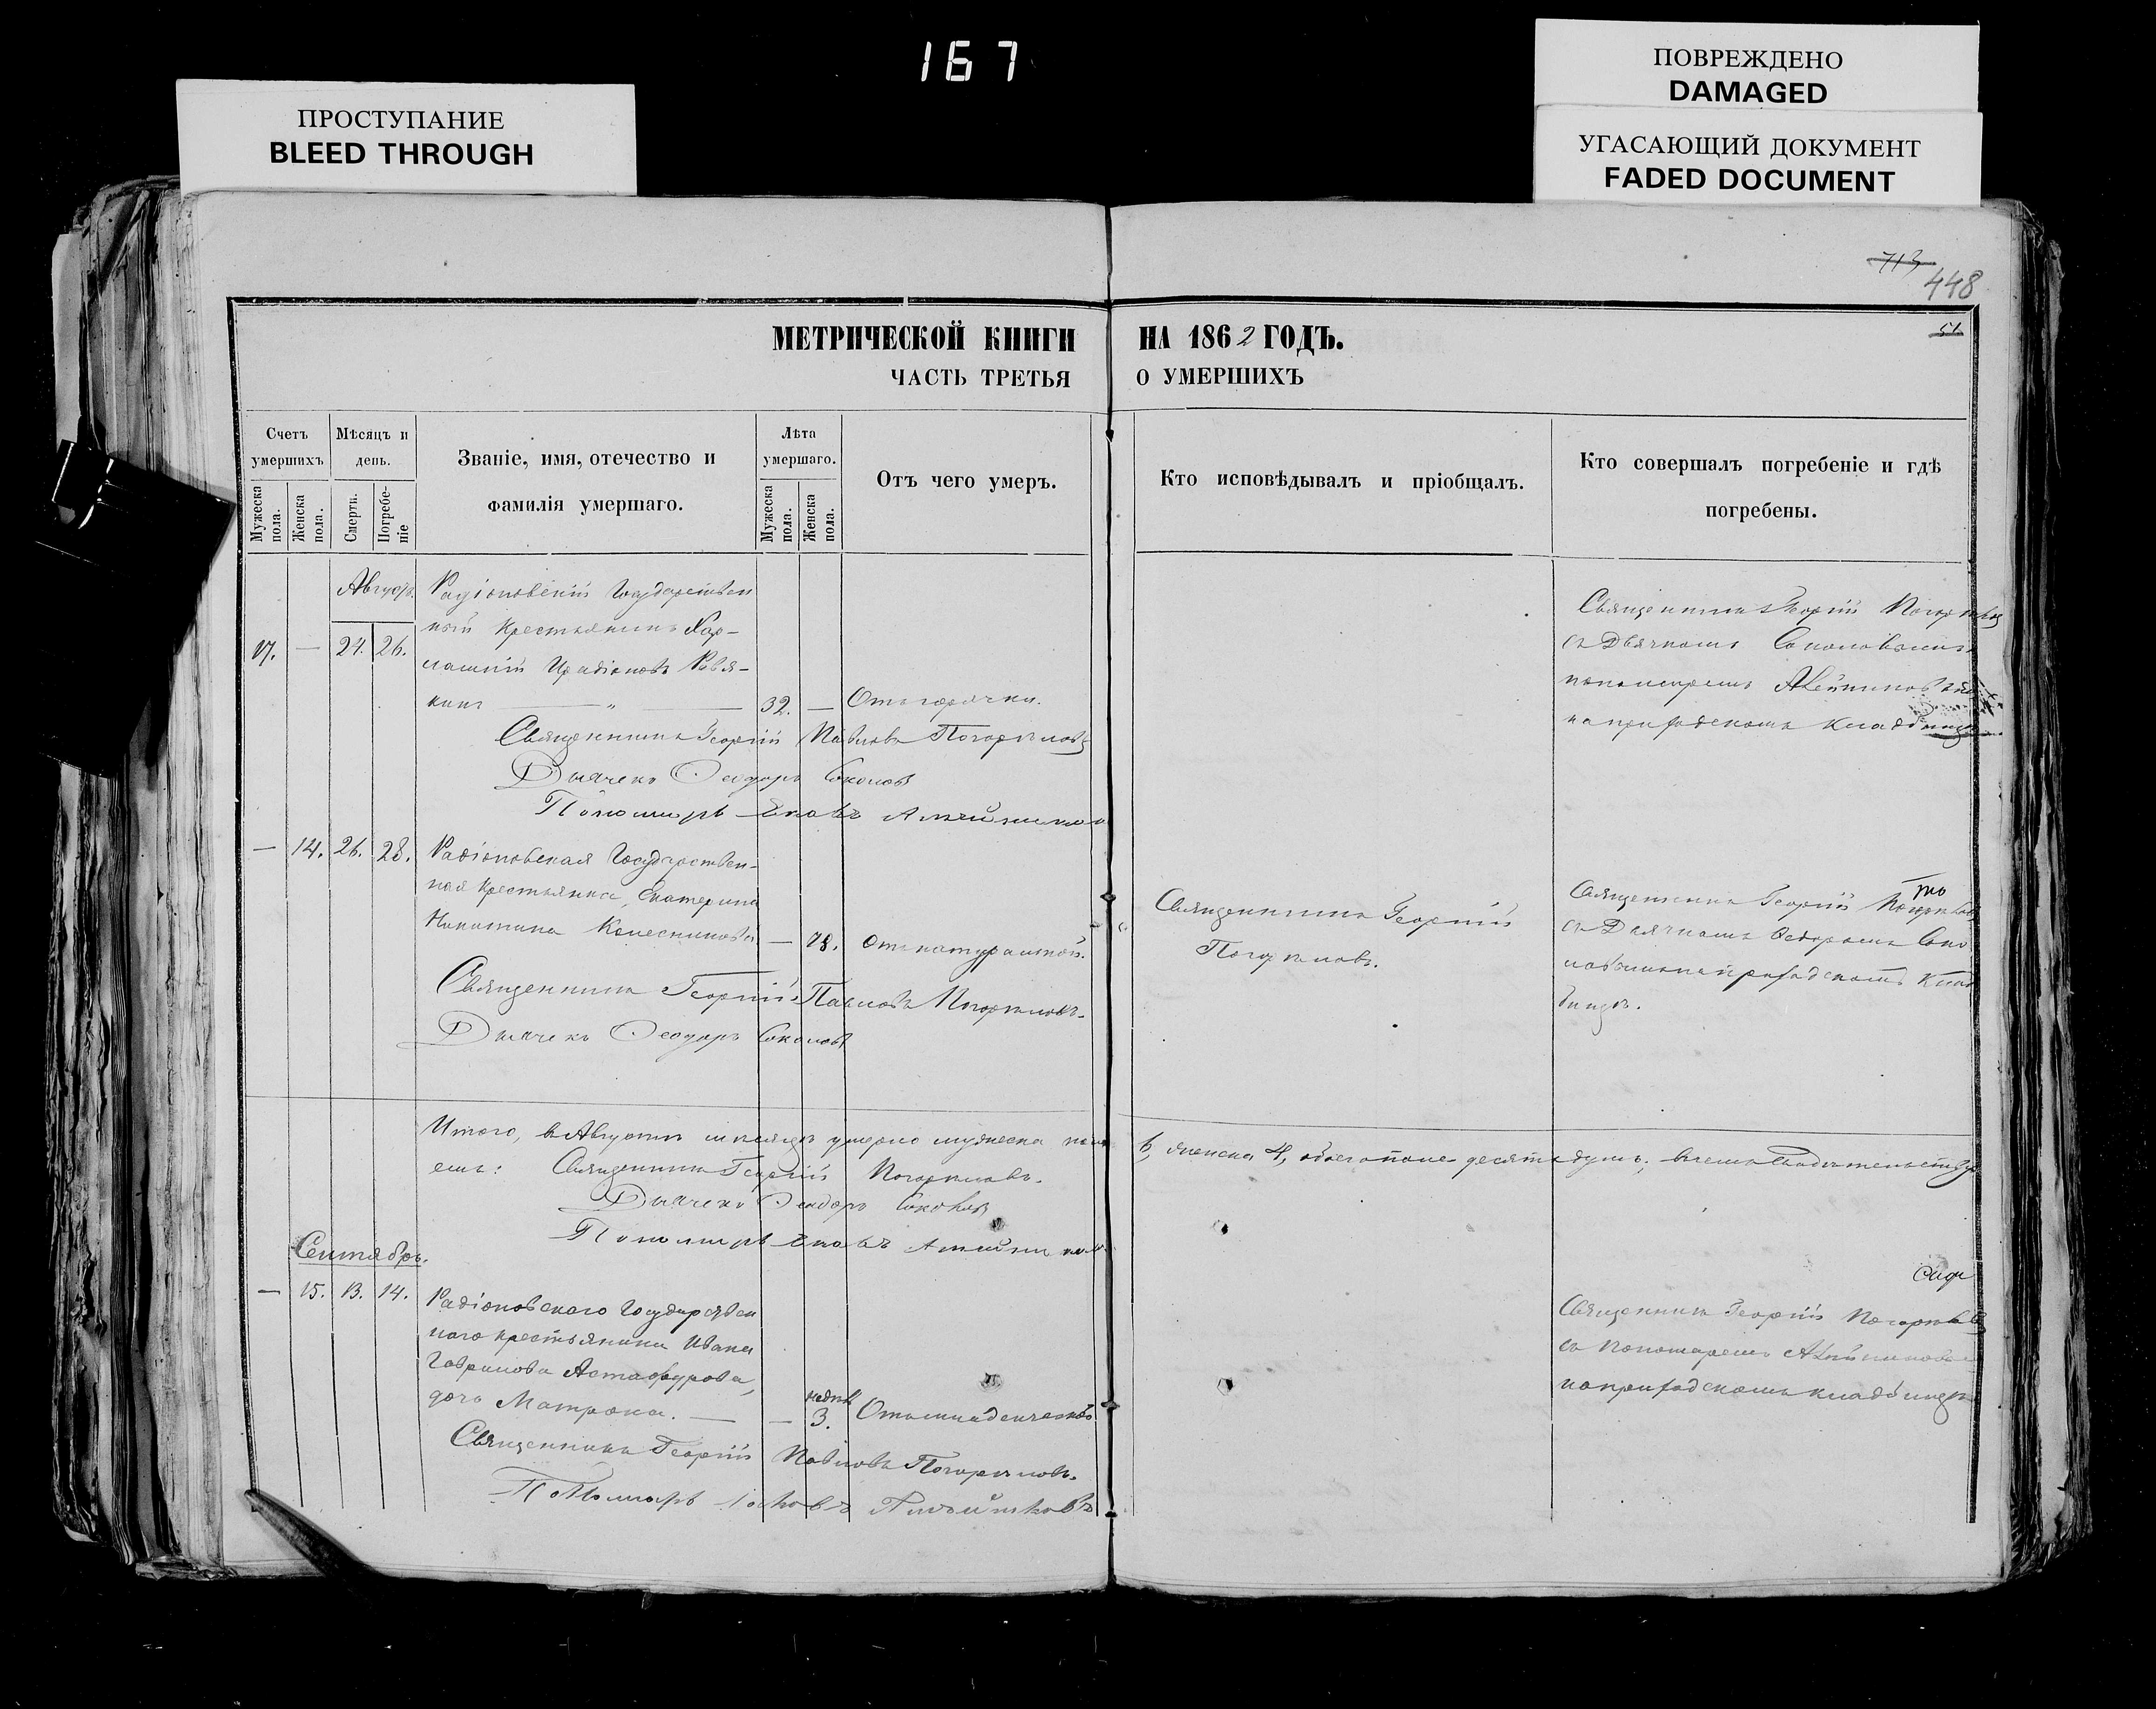 167
ПРОСТУПАНИЕ
BLEED THROUGH
ПОВРЕЖДЕНО
DAMAGED
УГАСАЮЩИЙ ДОКУМЕНТ
FADED DOCUMENT
713
448
51
МЕТРИЧЕСКОЙ КНИГИ НА 1862 ГОДЪ.
ЧАСТЬ ТРЕТЬЯ О УМЕРШИХЪ
Счетъ умершихъ
Мужеска пола.
Женска пола.
Мѣсяцъ и день.
Смерти.
Погребеніе
Званіе, имя, отечество и
фамилія умершаго.
Лѣта умершаго.
Мужеска пола.
Женска пола.
Отъ чего умеръ.
Кто исповѣдывалъ и пріобщалъ.
Кто совершалъ погребеніе и гдѣ
погребены.
Августъ.
17. — 24. 26.
Радіоновскій Государствен
ный Крестьянинъ Хар-
лампій
кинъ — „ — 32. — Отъ горячки.
Священникъ Георгій Погорѣловъ
съ Дьячкомъ Соколовымъ
пономаремъ
на приходскомъ кладбищѣ
Священникъ Георгій Павловъ Погорѣловъ
Дьячекъ Ѳеодоръ Соколовъ
Пономарь Яковъ Алейниковъ
— 14. 26. 28.
Радіоновская Государствен-
ная крестьянка, Екатерина
Никитина Колесникова — 78. Отъ натуральной.
Священникъ Георгій
Погорѣловъ.
Священникъ Георгій Погорѣловъ
съ Дьячкомъ Ѳедоромъ Соко
ловымъ на приходскомъ клад
бищѣ.
Священникъ Георгій Павловъ Погорѣловъ.
Дьячекъ Ѳеодоръ Соколовъ
Итого, въ Августѣ мѣсяцѣ умерло мужеска пола 6, женска 4, обоего пола десять душъ; въ чемъ свидѣтельствуемъ:
Священникъ Георгій Погорѣловъ.
Дьячекъ Ѳеодоръ Соколовъ
Пономарь Яковъ Алейниковъ
Сентябрь.
— 15. 13. 14.
Радіоновскаго Государствен
наго крестьянина Ивана
Гаврилова
дочь Матрона. — — недѣль 3. Отъ младенческой
Священникъ Георгій Погорѣловъ
съ Пономаремъ Алейниковымъ
на приходскомъ кладбищѣ
Священникъ Георгій Павловъ Погорѣловъ.
Пономарь Яковъ Алейниковъ